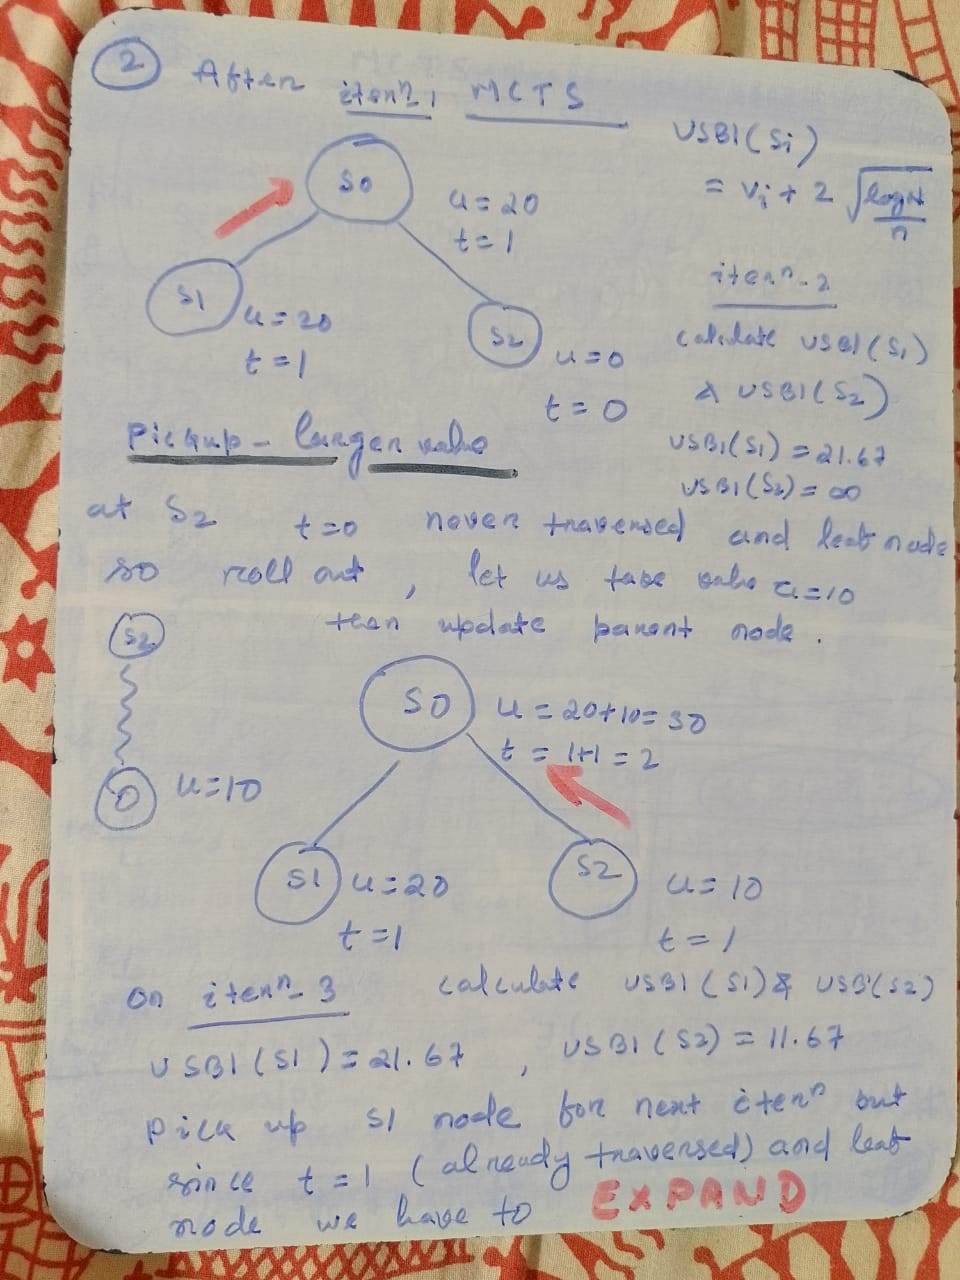 2 After itern 1 MCTS
USB1(Si)
= Vi + 2 √(log N / n)
S0
u = 20
t = 1
S1
u = 20
t = 1
S2
u = 0
t = 0
itern - 2
calculate USB1(S1)
& USB1(S2)
USB1(S1) = 21.67
USB1(S2) = ∞
Pickup - larger value
at S2 t=0 never traversed and leaf node
so roll out, let us take value u=10
then update parent node.
S2
0 u=10
S0
u = 20+10 = 30
t = 1+1 = 2
S1 u = 20
t = 1
S2 u = 10
t = 1
on itern - 3 calculate USB1(S1) & USB1(S2)
USB1(S1) = 21.67, USB1(S2) = 11.67
Pick up S1 node for next itern but
since t = 1 (already traversed) and leaf
node we have to EXPAND